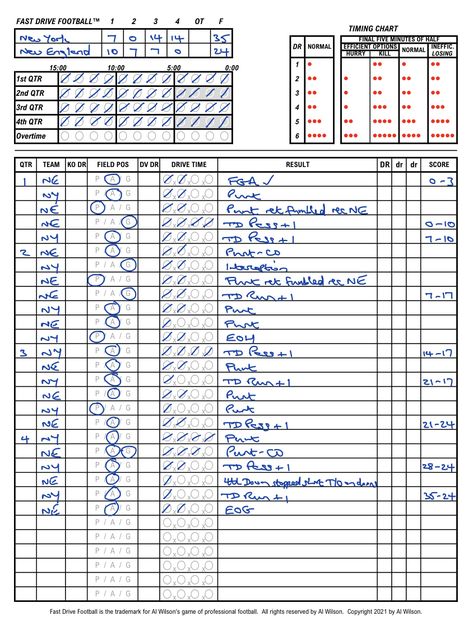 FAST DRIVE FOOTBALL™ 1 2 3 4 OT F
New York 7 0 14 14 35
New England 10 7 7 0 24
15:00 10:00 5:00 0:00
1st QTR
2nd QTR
3rd QTR
4th QTR
Overtime
TIMING CHART
FINAL FIVE MINUTES OF HALF
DR NORMAL EFFICIENT OPTIONS NORMAL INEFFIC.
HURRY KILL LOSING
1
2
3
4
5
6
QTR TEAM KO DR FIELD POS DV DR DRIVE TIME RESULT DR dr dr SCORE
1 NE P A G FGA ✓ 0-3
NY P A G Punt
NE P / A / G Punt ret fumbled rec NE
NE P / A G TD Pass +1 0-10
NY P A G TD Pass +1 7-10
2 NE P A G Punt-CO
NY P / A G Interception
NE P / A / G Punt ret fumbled rec NE
NE P / A G TD Run +1 7-17
NY P A G Punt
NE P A G Punt
NY P A / G EOH
3 NY P A G TD Pass +1 14-17
NE P A G Punt
NY P A G TD Run +1 21-17
NE P A G Punt
NY P A / G Punt
NE P A G TD Pass +1 21-24
4 NY P A G Punt
NE P A G Punt-CO
NY P A G TD Pass +1 28-24
NE P A G 4th Down stopped short T/O on downs
NY P A G TD Run +1 35-24
NE P A G EOG
P / A / G
P / A / G
P / A / G
P / A / G
P / A / G
P / A / G
Fast Drive Football is the trademark for Al Wilson's game of professional football. All rights reserved by Al Wilson. Copyright 2021 by Al Wilson.